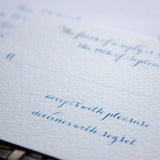 The favor of a reply is
the        of Septem
M
accepts with pleasure
declines with regret